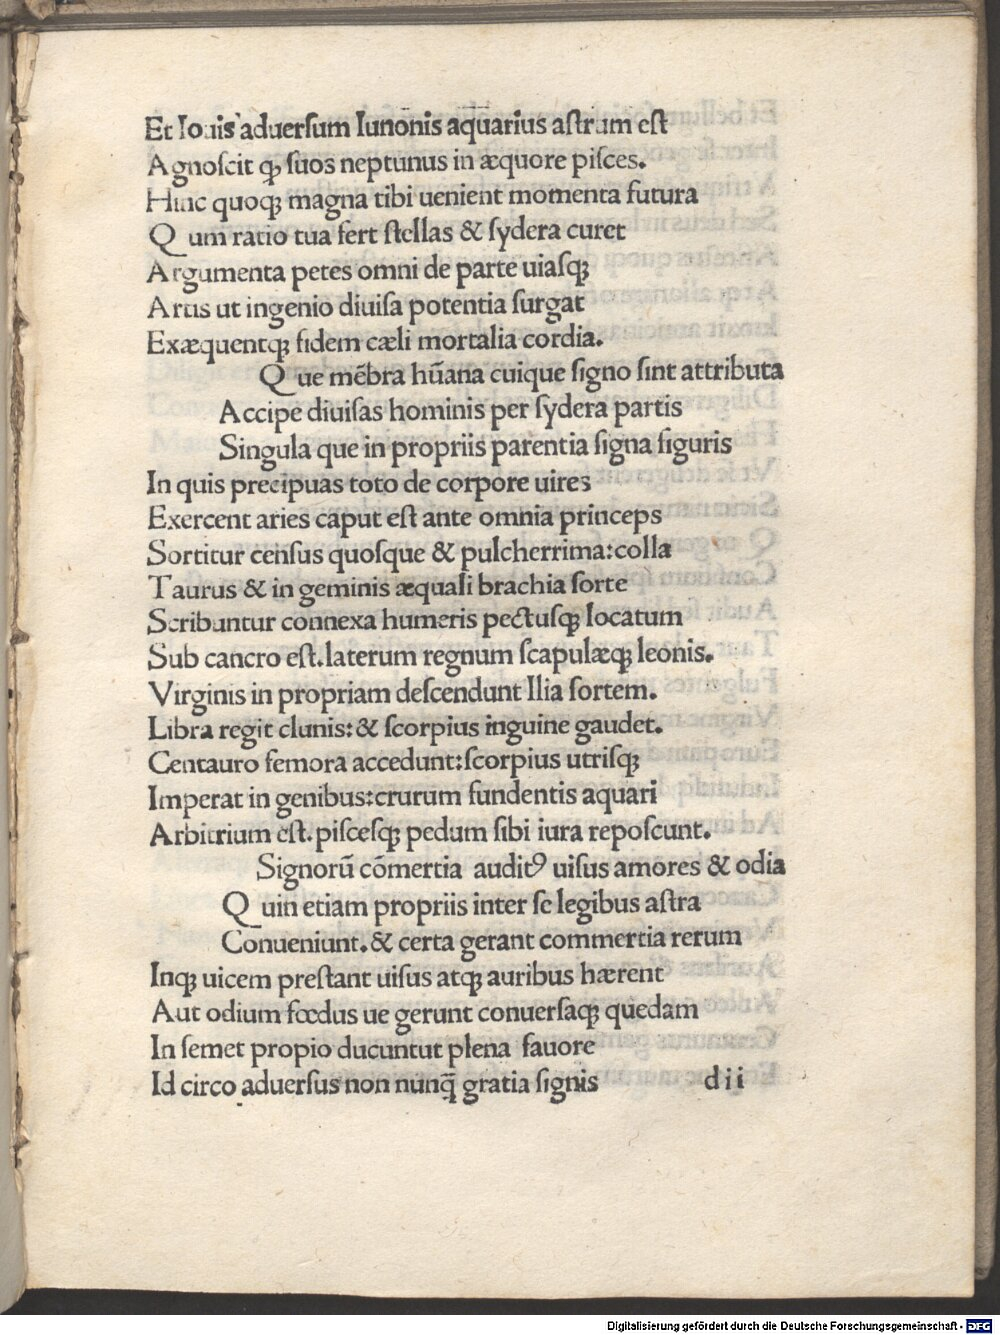 Et Iouis aduerſum Iunonis aquarius aſtrum eſt
Agnoſcit ꝙ ſuos neptunus in æquore piſces.
Hinc quoqꝫ magna tibi uenient momenta futura
Q um ratio tua fert ſtellas & ſydera curet
Argumenta petes omni de parte uiaſqꝫ
Artis ut ingenio diuiſa potentia ſurgat
Exæquentqꝫ fidem cæli mortalia cordia.
Q ue mēbra hūana cuique ſigno ſint attributa
Accipe diuiſas hominis per ſydera partis
Singula que in propriis parentia ſigna figuris
In quis precipuas toto de corpore uires
Exercent aries caput eſt ante omnia princeps
Sortitur cenſus quoſque & pulcherrima:colla
Taurus & in geminis æquali brachia ſorte
Scribuntur connexa humeris pectuſqꝫ locatum
Sub cancro eſt.laterum regnum ſcapulæqꝫ leonis.
Virginis in propriam deſcendunt Ilia ſortem.
Libra regit clunis:& ſcorpius inguine gaudet.
Centauro femora accedunt:ſcorpius utriſqꝫ
Imperat in genibus:crurum fundentis aquari
Arbitrium eſt.piſceſqꝫ pedum ſibi iura repoſcunt.
Signorū cōmertia auditꝰ uiſus amores & odia
Q uin etiam propriis inter ſe legibus aſtra
Conueniunt.& certa gerant commertia rerum
Inqꝫ uicem preſtant uiſus atqꝫ auribus hærent
Aut odium fœdus ue gerunt conuerſaqꝫ quedam
In ſemet propio ducuntut plena fauore
Id circo aduerſus non nunq̄ gratia ſignis d ii
Digitalisierung gefördert durch die Deutsche Forschungsgemeinschaft - DFG